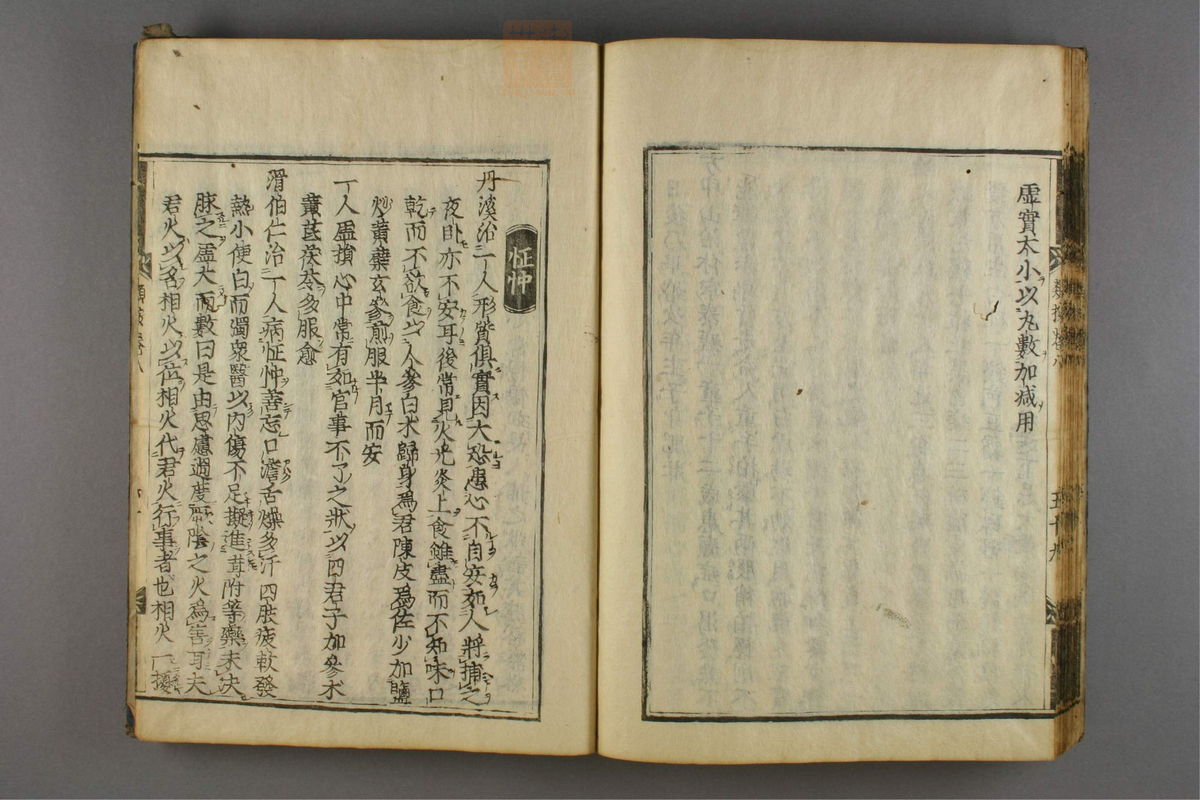 虛實大小以丸數加減用
五十九
怔忡
丹溪治一人形質俱實因大恐患心不自安如人將捕之
夜臥亦不安耳後常見火光炎上食雖盡而不知味口
乾而不欲食以人參白朮歸身爲君陳皮爲佐少加鹽
炒黃蘗玄參煎服半月而安
一人虛損心中常有如官事不了之狀以四君子加參朮
黃芪茯苓多服愈
滑伯仁治一人病怔忡善忘口澹舌燥多汗四肢疲軟發
熱小便白而濁衆醫以内傷不足擬進茸附等藥未决
脉之虛大而數曰是由思慮過度厥陰之火爲害耳夫
君火以名相火以位相火代君火行事者也相火一擾